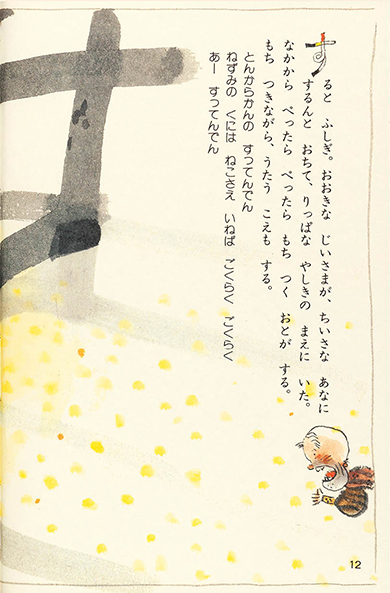 すると ふしぎ。おおきな じいさまが、ちいさな あなに
するんと おちて、りっぱな やしきの まえに いた。
なかから ぺったら ぺったら もち つく おとが する。
もち つきながら、うたう こえも する。
とんからかんの すってんでん
ねずみの くには ねこさえ いねば ごくらく ごくらく
あー すってんでん
12